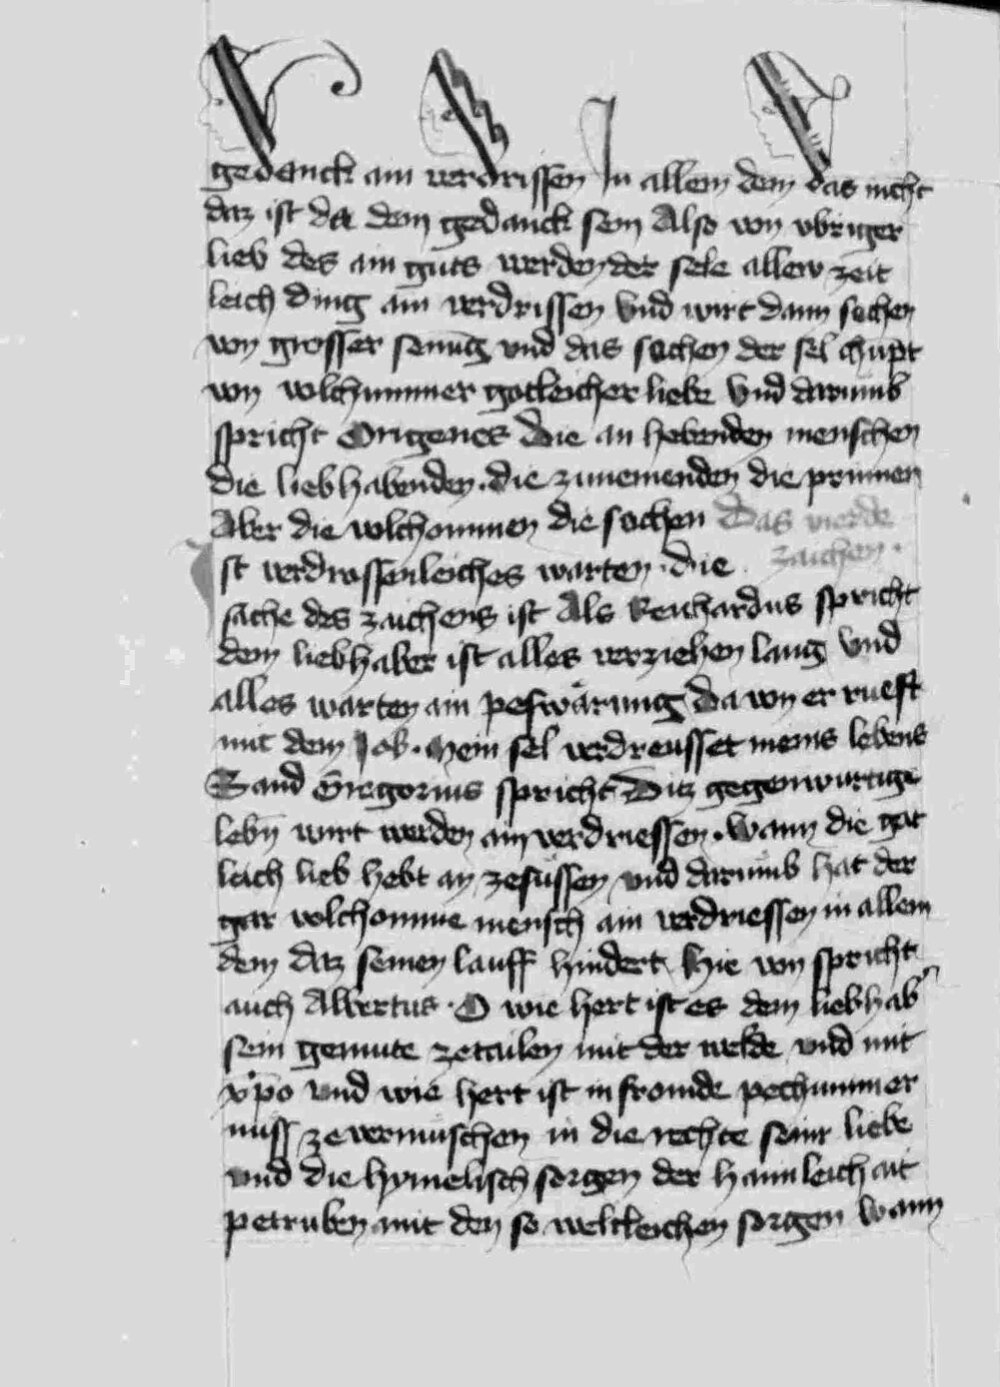 gedanck ain verdrissen In allem dem das nicht
daz ist da dem gedanck sein Also von vbriger
lieb des ain guts werden der sele allew zeit
leich ding ain verdrissen Vnd wirt dann sechen
von grosser senung vnd das sochen der sel chupt
von volchummer gotleicher liebe Vnd darumb
spricht Origenes Die an hebenden menschen
die lieb habenden . die zunemenden die prinnen
Aber die volchommen die sochen Das vierde
zaichen .
st verdrossenleiches warten . die
sache des zaichens ist Als Reichardus spricht
dem liebhaber ist alles verziehen lang Vnd
alles warten ain peswärung Da von er rueft
mit dem Job . Mein sel verdreusset meins lebens
Sand Gregorius spricht Ditz gegenwurtige
lebn̄ wirt werden ain verdriessen . Wann die got
leich lieb hebt an zesussen vnd darumb hat der
gar volchomme mensch ain verdriessen in allem
dem daz seinen lauff hindert Hie von spricht
auch Albertus . O wie hert ist es dem liebhab
sein gemute zetailen mit der welde vnd mit
xp̄o vnd wie hert ist in fromde pechummer
nuss ze vermischen in die rechte seinr liebe
vnd die hymelisch sorgen der haimleichait
petruben mit den so weltleichen sorgen Wann